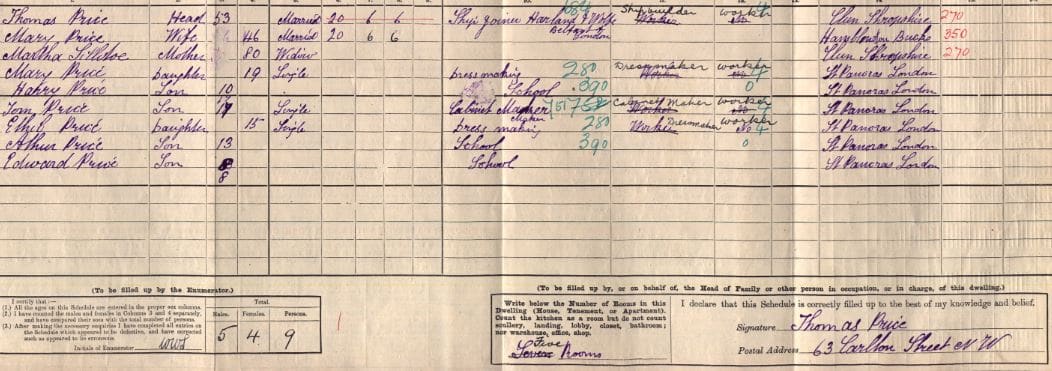 Thomas Price Head 53 Married 20 6 6 Ship Joiner Harland & Wolfe Belfast & London 184 Shipbuilder Worker Clun Shropshire 270
Mary Price Wife 46 Married 20 6 6 Hambleden Bucks 350
Martha Mother 80 Widow Clun Shropshire 270
Mary Price Daughter 19 Single Dress making 280 Dressmaker Worker 4 St Pancras London
Harry Price Son 10 School 390 0 St Pancras London
Tom Price Son 17 Single Cabinet Maker 757 Cabinet Maker Worker St Pancras London
Ethel Price Daughter 15 Single Dress making 280 Dressmaker Worker 4 St Pancras London
Arthur Price Son 13 School 390 0 St Pancras London
Edward Price Son 8 School St Pancras London
8
(To be filled up by the Enumerator.)
I certify that:—
(1.) All the ages on this Schedule are entered in the proper sex columns.
(2.) I have counted the males and females in Columns 3 and 4 separately, and have compared their sum with the total number of persons.
(3.) After making the necessary enquiries I have completed all entries on the Schedule which appeared to be defective, and have corrected such as appeared to be erroneous.
Initials of Enumerator
Total.
Males. Females. Persons.
5 4 9
(To be filled up by, or on behalf of, the Head of Family or other person in occupation, or in charge, of this dwelling.)
Write below the Number of Rooms in this Dwelling (House, Tenement, or Apartment). Count the kitchen as a room but do not count scullery, landing, lobby, closet, bathroom; nor warehouse, office, shop.
Five
Seven Rooms
I declare that this Schedule is correctly filled up to the best of my knowledge and belief.
Signature Thomas Price
Postal Address 63 Carlton Street N W